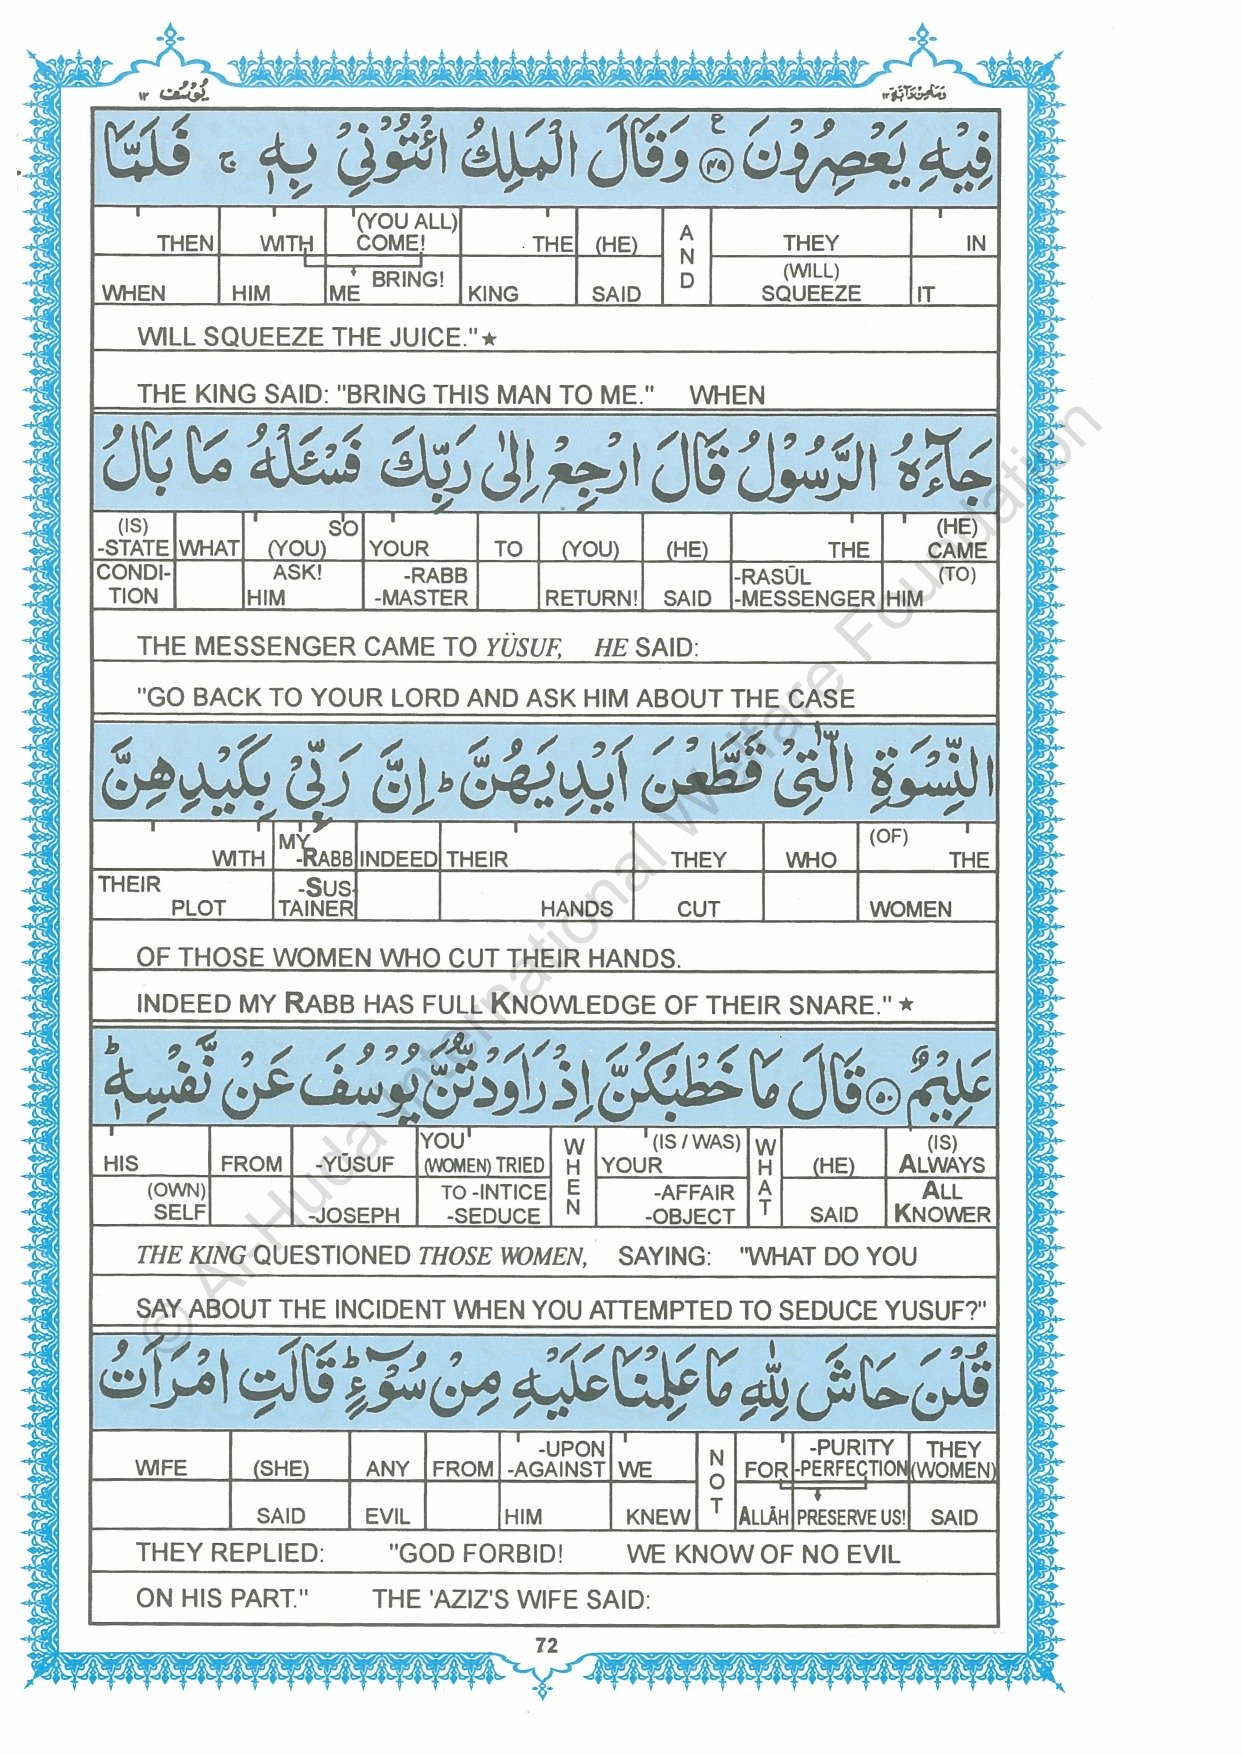 يُوسُف ١٢
وَمَا مِنْ دَآبَّة ١٢
فِيْهِ يَعْصِرُوْنَ ﴿٤٩﴾ ع وَقَالَ الْمَلِكُ ائْتُوْنِيْ بِهٖ ج فَلَمَّا
THEN | WITH | (YOU ALL) COME! | THE | (HE) | AND | THEY | IN
WHEN | HIM | ME BRING! | KING | SAID | (WILL) SQUEEZE | IT
WILL SQUEEZE THE JUICE."★
THE KING SAID: "BRING THIS MAN TO ME." WHEN
جَآءَهُ الرَّسُوْلُ قَالَ ارْجِعْ اِلٰى رَبِّكَ فَسْـَٔلْهُ مَا بَالُ
(IS) -STATE | WHAT | SO (YOU) | YOUR | TO | (YOU) | (HE) | THE | (HE) CAME
CONDI-TION | ASK! HIM | -RABB -MASTER | RETURN! | SAID | -RASŪL -MESSENGER | (TO) HIM
THE MESSENGER CAME TO YÜSUF, HE SAID:
"GO BACK TO YOUR LORD AND ASK HIM ABOUT THE CASE
النِّسْوَةِ الّٰتِيْ قَطَّعْنَ اَيْدِيَهُنَّ ط اِنَّ رَبِّيْ بِكَيْدِهِنَّ
WITH | MY -RABB | INDEED | THEIR | THEY | WHO | (OF) THE
THEIR PLOT | -SUS-TAINER | HANDS | CUT | WOMEN
OF THOSE WOMEN WHO CUT THEIR HANDS.
INDEED MY RABB HAS FULL KNOWLEDGE OF THEIR SNARE."★
عَلِيْمٌ ﴿٥٠﴾ قَالَ مَا خَطْبُكُنَّ اِذْ رَاوَدْتُّنَّ يُوْسُفَ عَنْ نَّفْسِهٖ ط
HIS | FROM | -YŪSUF | YOU (WOMEN) TRIED | WHEN | (IS / WAS) YOUR | WHAT | (HE) | (IS) ALWAYS
(OWN) SELF | -JOSEPH | TO -INTICE -SEDUCE | -AFFAIR -OBJECT | SAID | ALL KNOWER
THE KING QUESTIONED THOSE WOMEN, SAYING: "WHAT DO YOU
SAY ABOUT THE INCIDENT WHEN YOU ATTEMPTED TO SEDUCE YUSUF?"
قُلْنَ حَاشَ لِلّٰهِ مَا عَلِمْنَا عَلَيْهِ مِنْ سُوْٓءٍ ط قَالَتِ امْرَاَتُ
WIFE | (SHE) | ANY | FROM | -UPON -AGAINST | WE | NOT | FOR | -PURITY -PERFECTION | THEY (WOMEN)
SAID | EVIL | HIM | KNEW | ALLĀH | PRESERVE US! | SAID
THEY REPLIED: "GOD FORBID! WE KNOW OF NO EVIL
ON HIS PART." THE 'AZIZ'S WIFE SAID:
72
© Al-Huda International Welfare Foundation